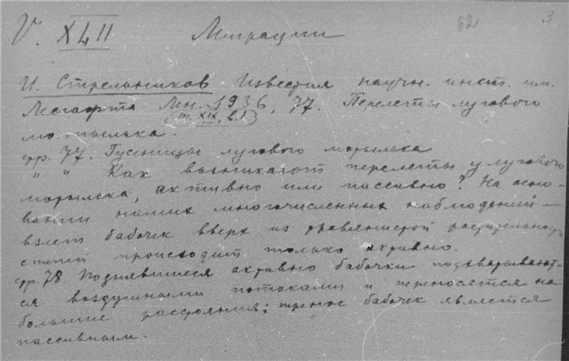 V. XLII Миграции 62 3
И. Стрельников Известия научн. инст. им.
Лесгафта Лен. 1936, 77. Перелеты лугового
мотылька. (т. XIX, в.1)
стр. 77. Гусеницы лугового мотылька
" " Как возникают перелеты у лугового
мотылька, активно или пассивно? На осно-
вании наших многочисленных наблюдений —
взлет бабочек вверх из травянистой растительности
степей происходит только активно.
стр. 78 Поднявшиеся активно бабочки подхватывают-
ся воздушными потоками и переносятся на
большие расстояния; перенос бабочек является
пассивным.